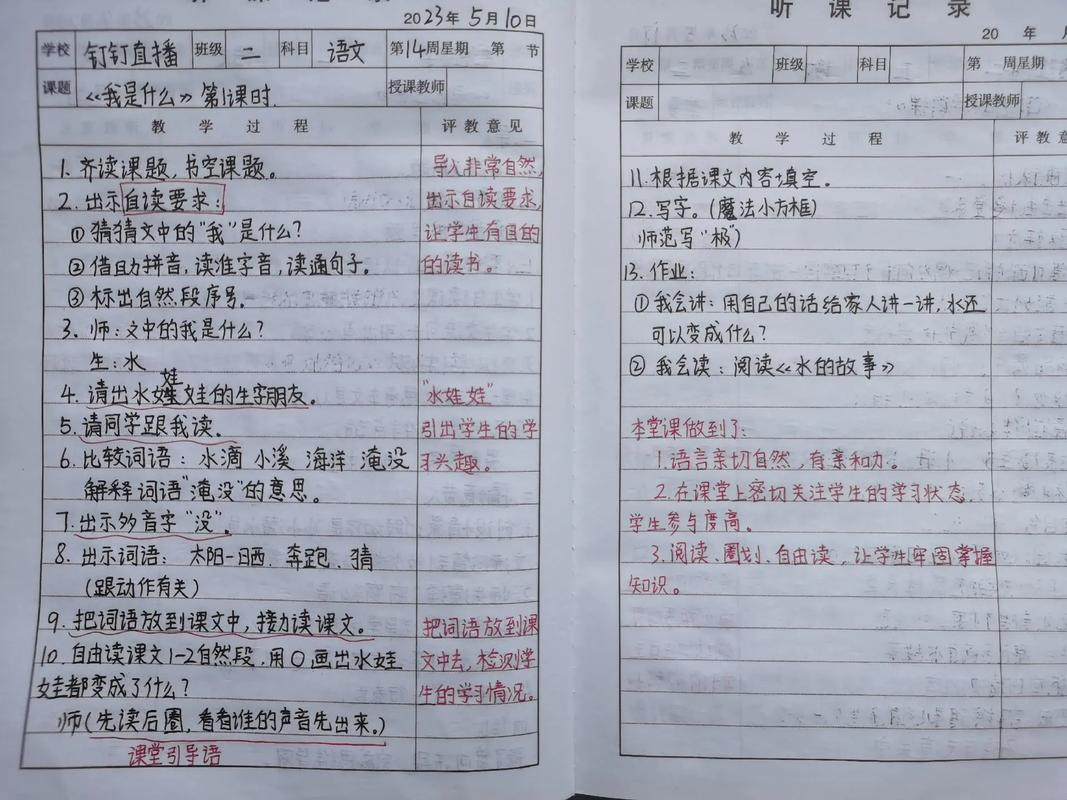 听课记录
2023年5月10日
学校 钉钉直播 班级 二 科目 语文 第14周星期 第 节
课题 《我是什么》第1课时. 授课教师
教 学 过 程 评 教 意 见
1. 齐读课题,书空课题。 导入非常自然,
2. 出示自读要求: 出示自读要求,
①猜猜文中的"我"是什么? 让学生有目的
②借助拼音,读准字音,读通句子。 的读书。
③标出自然段序号。
3. 师:文中的我是什么?
生:水
4. 请出水娃娃的生字朋友。 "水娃娃"
5. 请同学跟我读。 引出学生的学
6. 比较词语:水滴 小溪 海洋 淹没 习兴趣。
解释词语"淹没"的意思。
7. 出示多音字"没"。
8. 出示词语: 太阳一晒、奔跑、猜
(跟动作有关)
9. 把词语放到课文中,接力读课文。 把词语放到课
10. 自由读课文1-2自然段,用○画出水娃 文中去,检测学
娃都变成了什么? 生的学习情况。
师(先读后圈,看看谁的声音先出来。)
课堂引导语
听 课 记 录
20 年 月
学校 班级 科目 第 周星期
课题 授课教师
教 学 过 程 评 教 意
11. 根据课文内容填空。
12. 写字。(魔法小方框)
师范写"极")
13. 作业:
①我会讲:用自己的话给家人讲一讲,水还
可以变成什么?
②我会读:阅读《水的故事》
本堂课做到了:
1. 语言亲切自然,有亲和力。
2. 在课堂上密切关注学生的学习状态,
学生参与度高。
3. 阅读、圈划、自由读,让学生牢固掌握
知识。